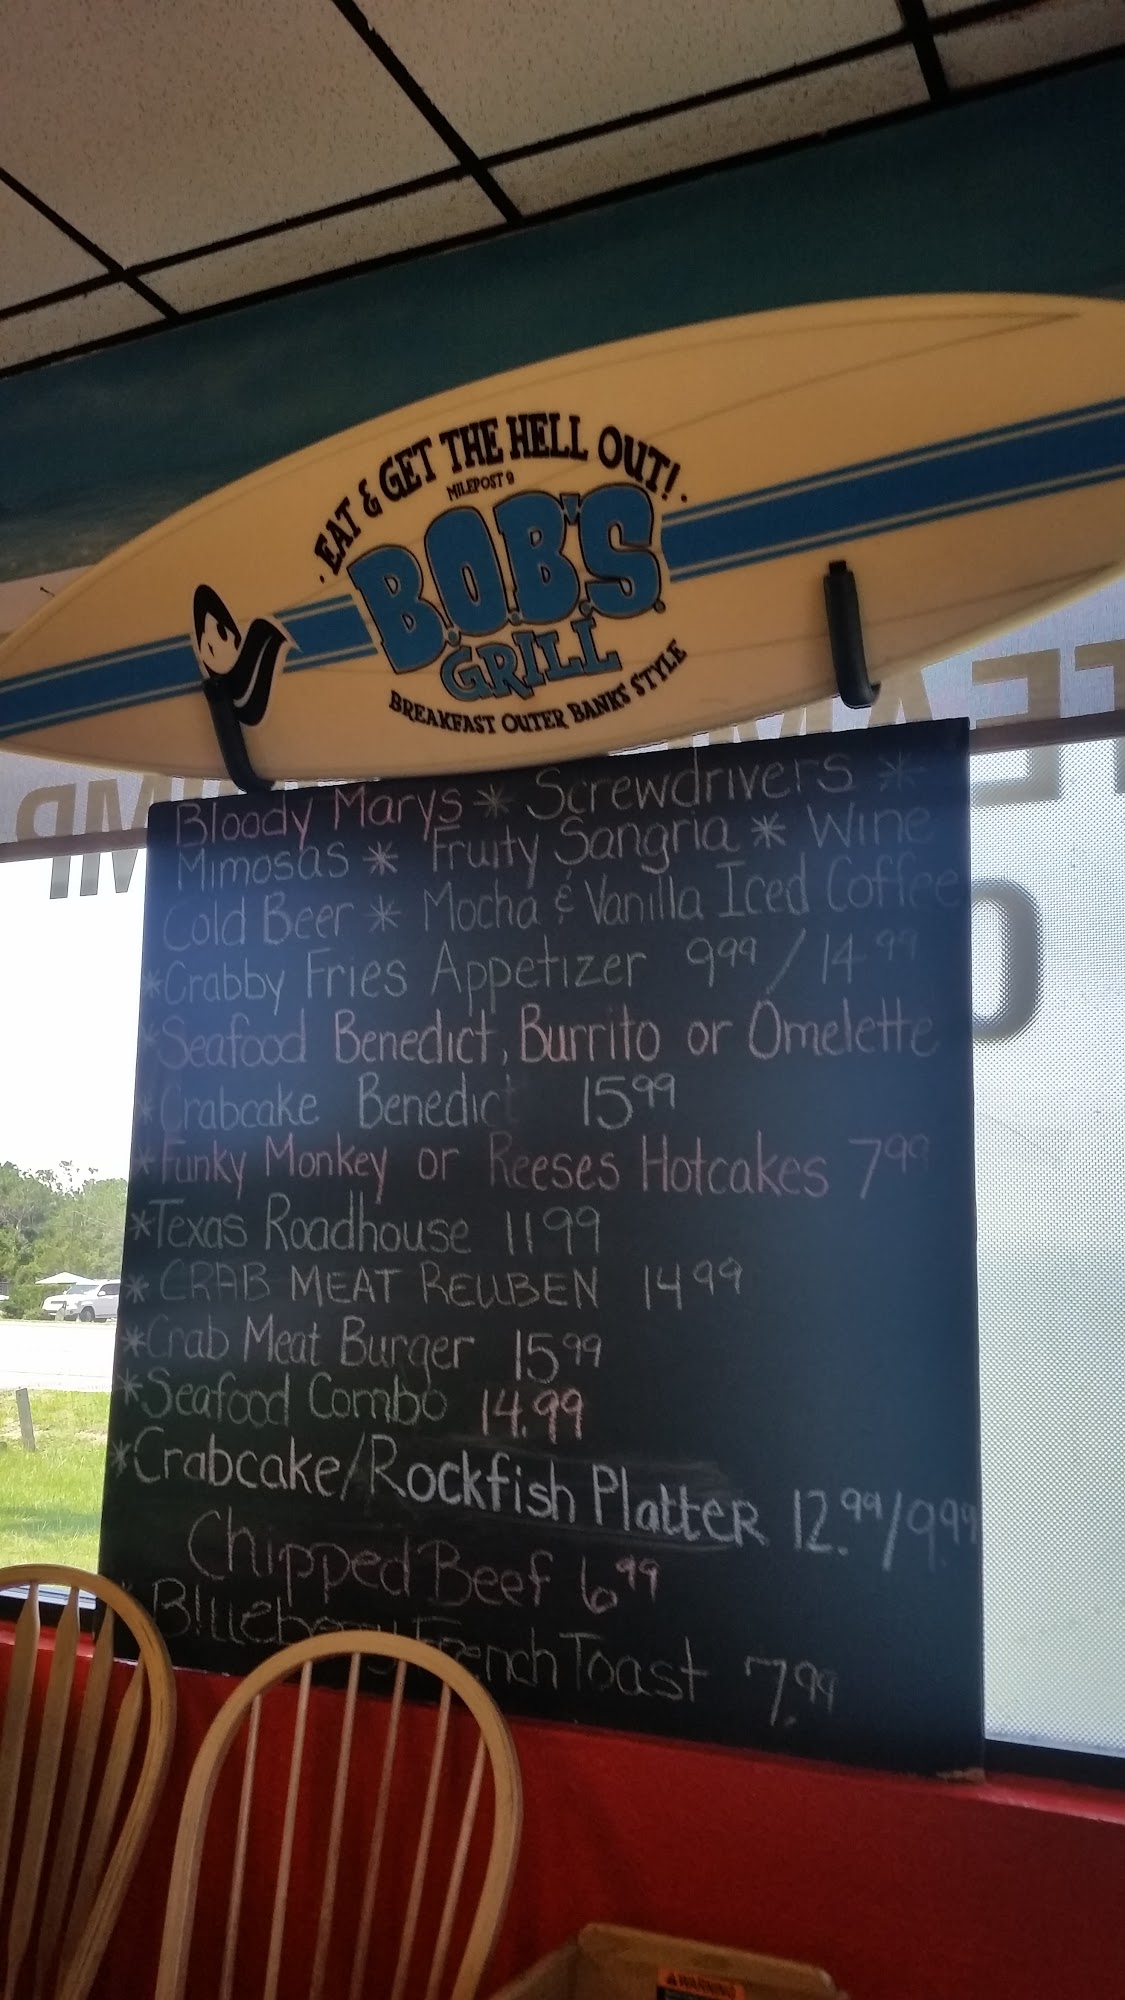 EAT & GET THE HELL OUT!
MILEPOST 9
B.O.B.'S.
GRILL
BREAKFAST OUTER BANKS STYLE
Bloody Marys * Screwdrivers *
Mimosas * Fruity Sangria * Wine
Cold Beer * Mocha & Vanilla Iced Coffee
*Crabby Fries Appetizer 9.99 / 14.99
*Seafood Benedict, Burrito or Omelette
*Crabcake Benedict 15.99
*Funky Monkey or Reeses Hotcakes 7.99
*Texas Roadhouse 11.99
*CRAB MEAT REUBEN 14.99
*Crab Meat Burger 15.99
*Seafood Combo 14.99
*Crabcake/Rockfish Platter 12.99/9.99
Chipped Beef 6.99
Blueberry French Toast 7.99
WARNING